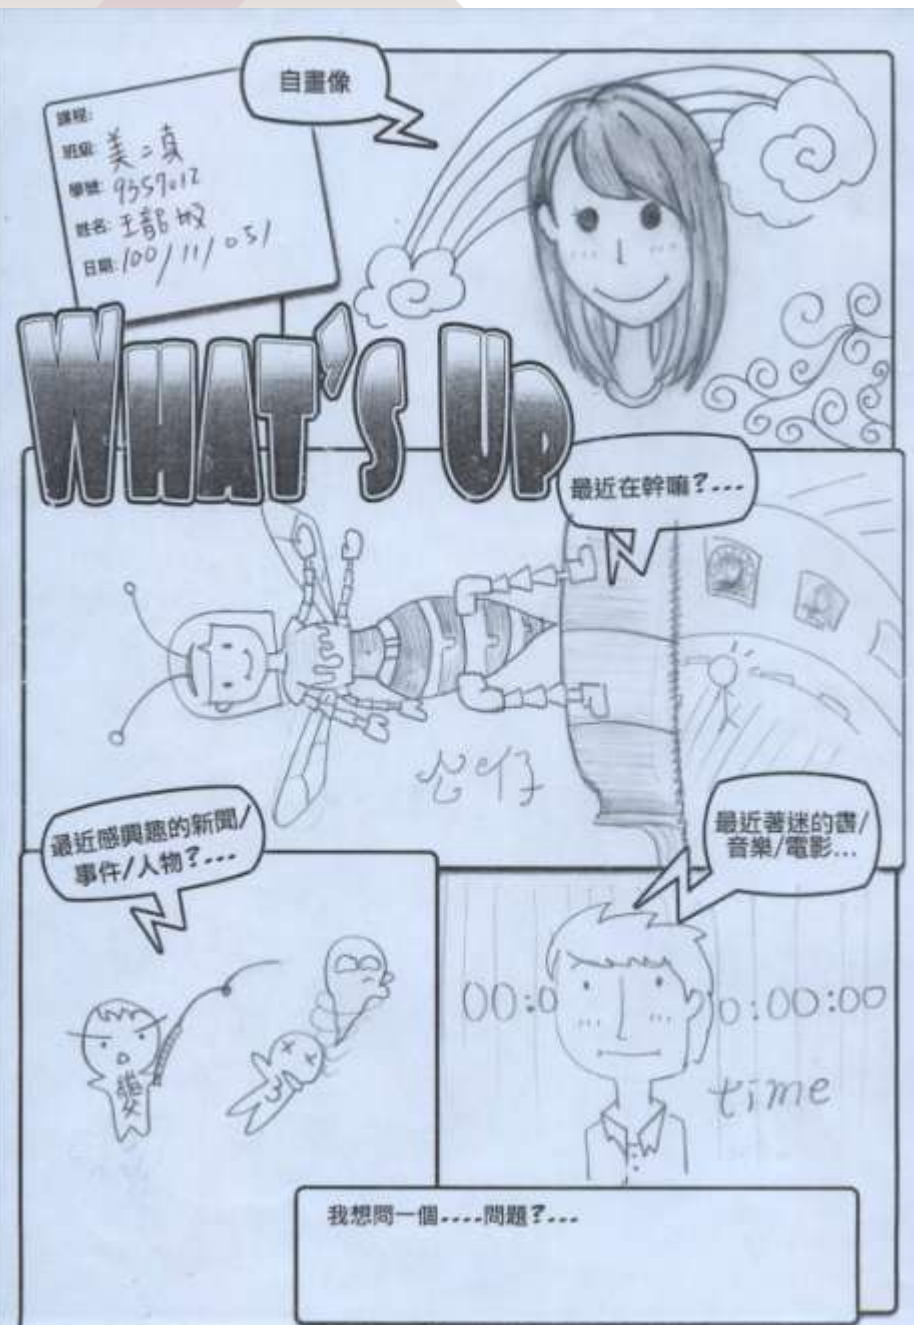 自畫像
課程:
班級: 美二真
學號: 9357012
姓名: 王
日期: 100/11/05/
WHAT'S UP
最近在幹嘛?...
最近感興趣的新聞/
事件/人物?...
最近著迷的書/
音樂/電影...
00:0 0:00:00
time
我想問一個....問題?...